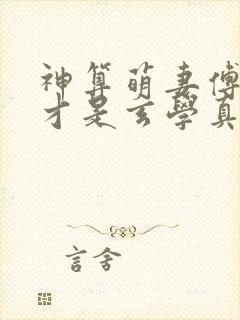 神算萌妻傅
才是玄學真
言舍